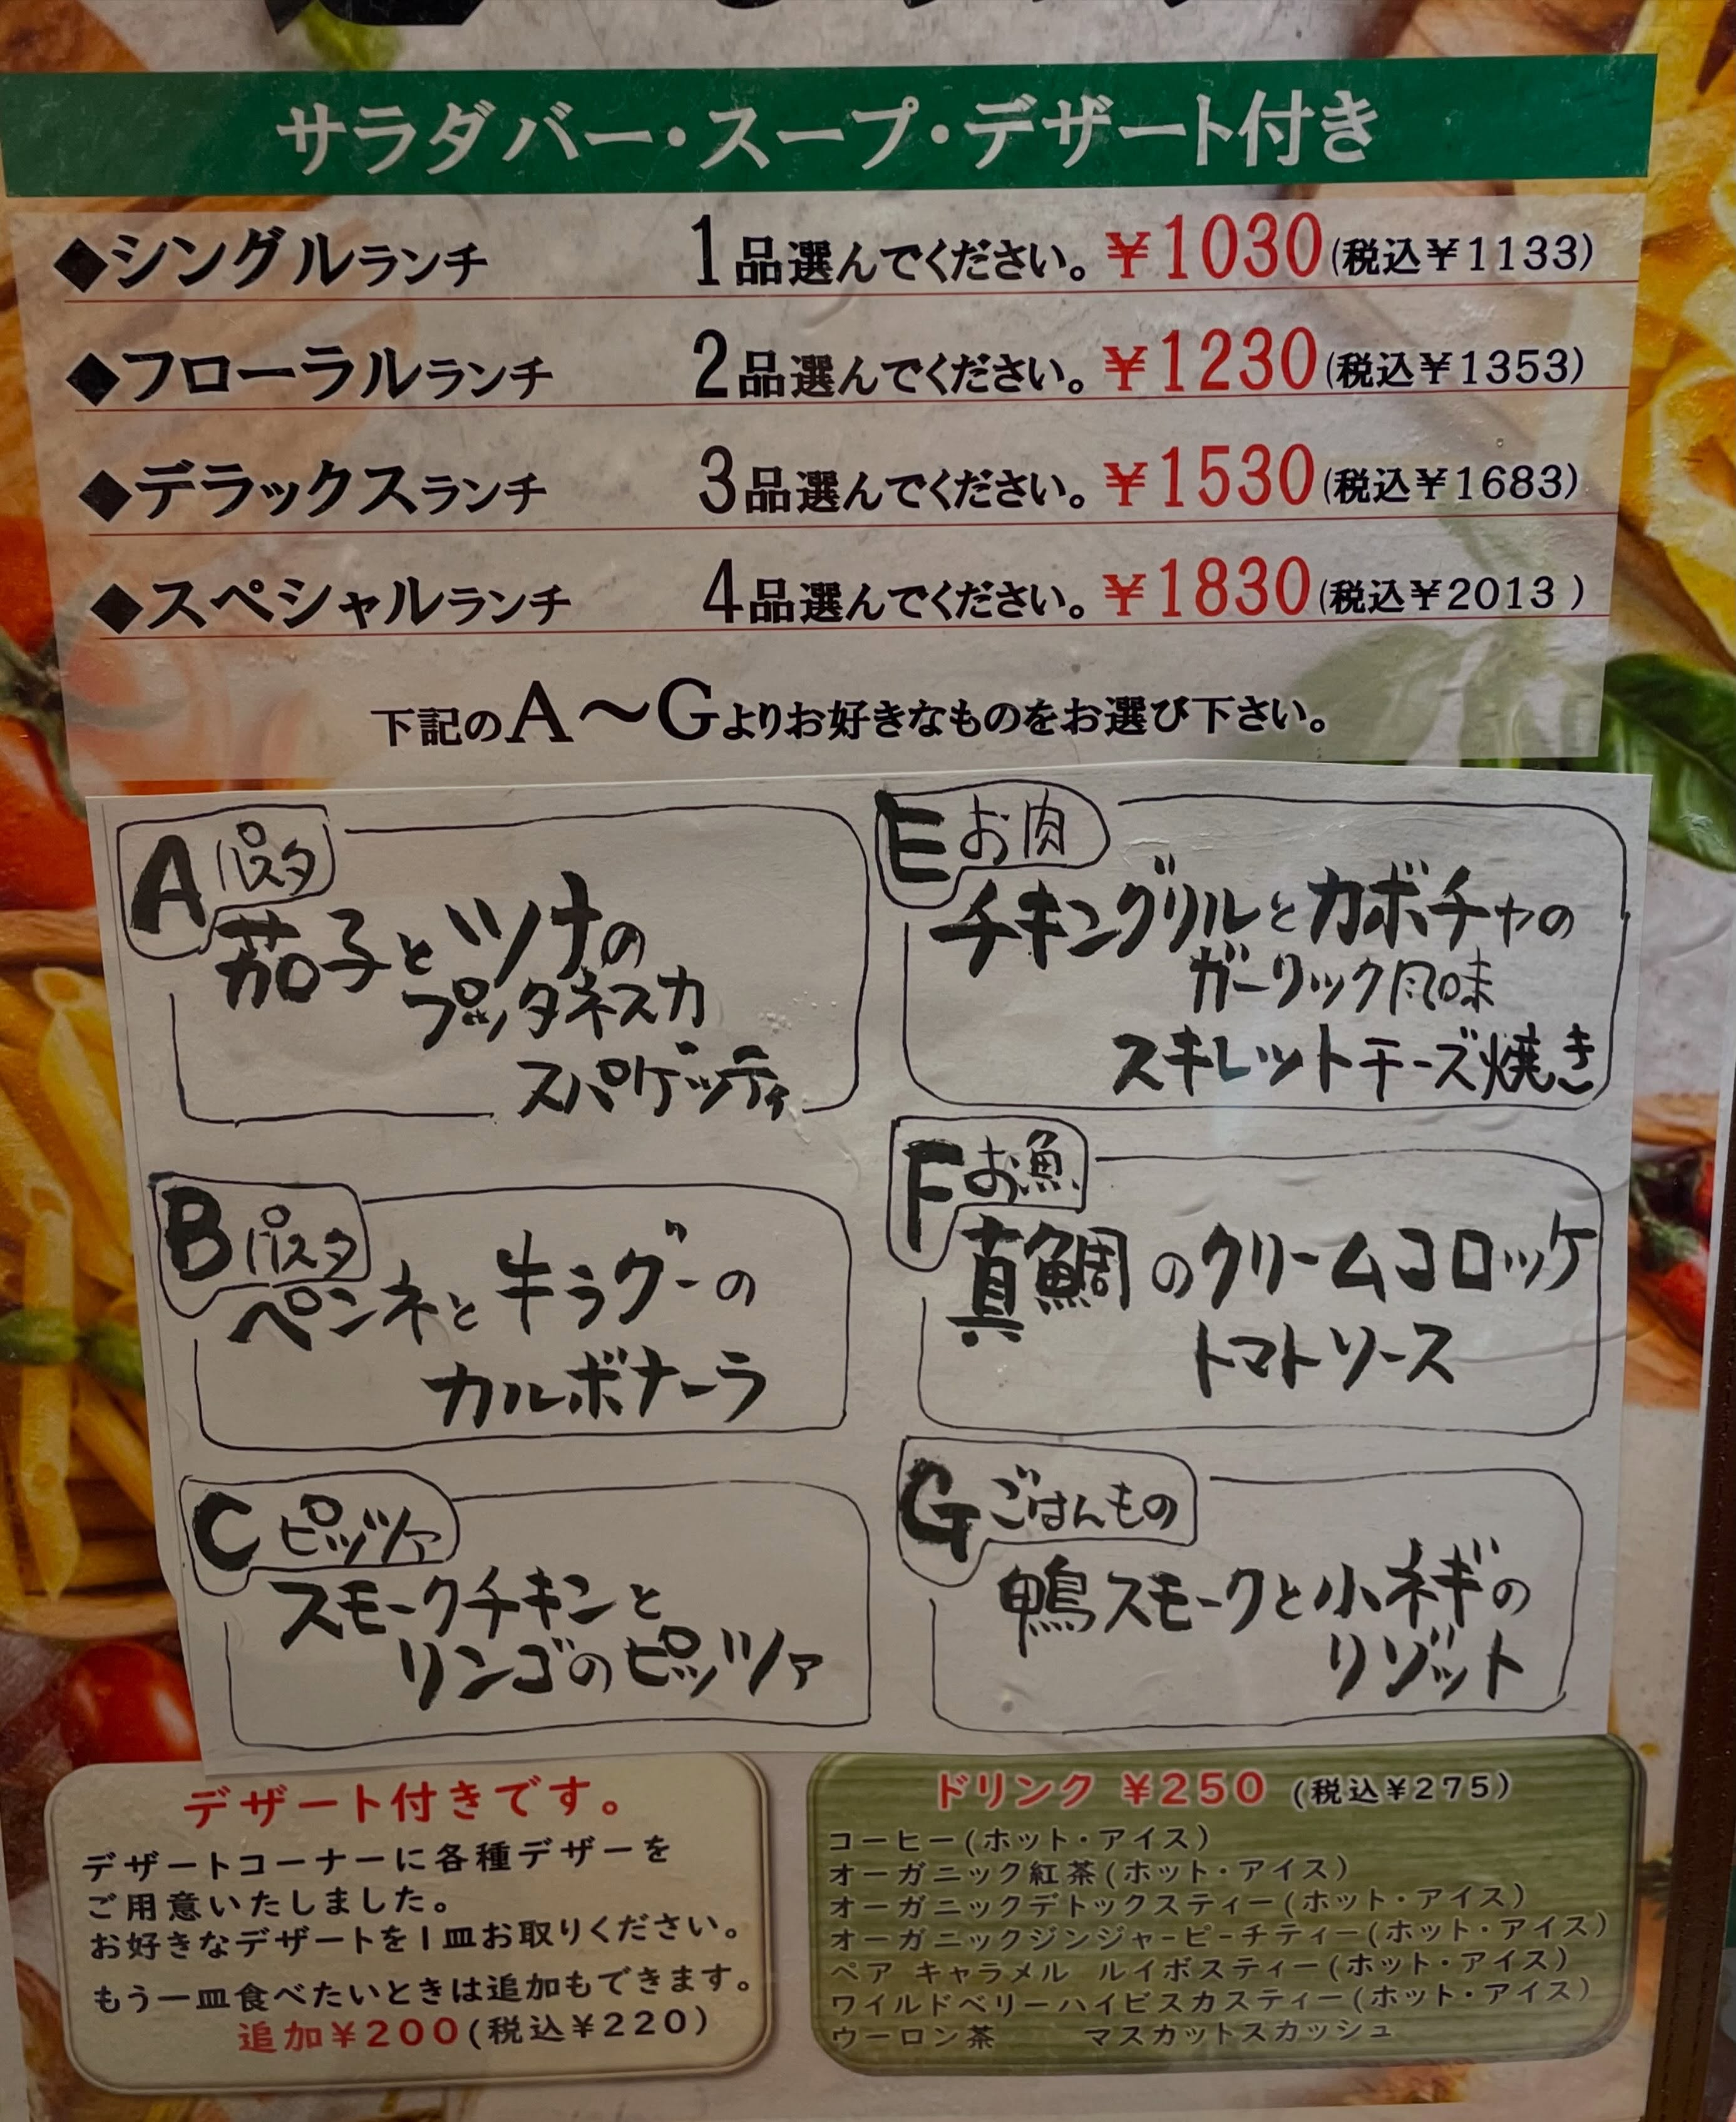 サラダバー・スープ・デザート付き
◆シングルランチ 1品選んでください。¥1030(税込¥1133)
◆フローラルランチ 2品選んでください。¥1230(税込¥1353)
◆デラックスランチ 3品選んでください。¥1530(税込¥1683)
◆スペシャルランチ 4品選んでください。¥1830(税込¥2013)
下記のA〜Gよりお好きなものをお選び下さい。
A パスタ
茄子とツナの
プッタネスカ
スパゲッティ
B パスタ
ペンネと牛ラグーの
カルボナーラ
C ピッツァ
スモークチキンと
リンゴのピッツァ
E お肉
チキングリルとカボチャの
ガーリック風味
スキレットチーズ焼き
F お魚
真鯛のクリームコロッケ
トマトソース
G ごはんもの
鴨スモークと小ネギの
リゾット
デザート付きです。
デザートコーナーに各種デザーを
ご用意いたしました。
お好きなデザートを1皿お取りください。
もう一皿食べたいときは追加もできます。
追加¥200(税込¥220)
ドリンク ¥250 (税込¥275)
コーヒー(ホット・アイス)
オーガニック紅茶(ホット・アイス)
オーガニックデトックスティー(ホット・アイス)
オーガニックジンジャーピーチティー(ホット・アイス)
ペア キャラメル ルイボスティー(ホット・アイス)
ワイルドベリーハイビスカスティー(ホット・アイス)
ウーロン茶 マスカットスカッシュ